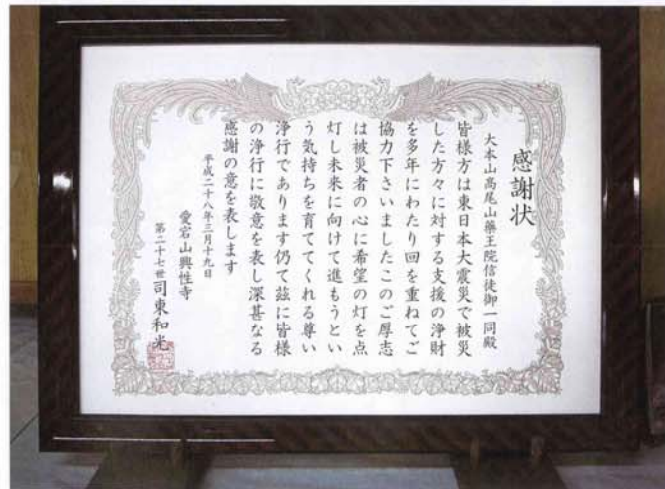 感謝状
大本山高尾山藥王院信徒御一同殿
皆様方は東日本大震災で被災
した方々に対する支援の浄財
を多年にわたり回を重ねてご
協力下さいましたこのご厚志
は被災者の心に希望の灯を点
灯し未来に向けて進もうとい
う気持ちを育ててくれる尊い
浄行であります仍て茲に皆様
の浄行に敬意を表し深甚なる
感謝の意を表します
平成二十八年三月十九日
愛宕山興性寺
第二十七世司東和光